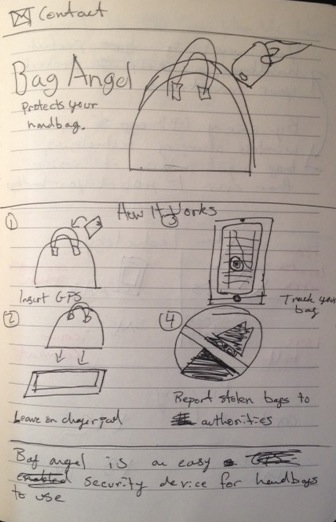 Contact
Bag Angel
Protects your
handbag.
How It Works
1
Insert GPS
3
Track your
bag
2
Leave on charger pad
4
Report stolen bags to
authorities
Bag angel is an easy GPS
enabled security device for handbags
to use